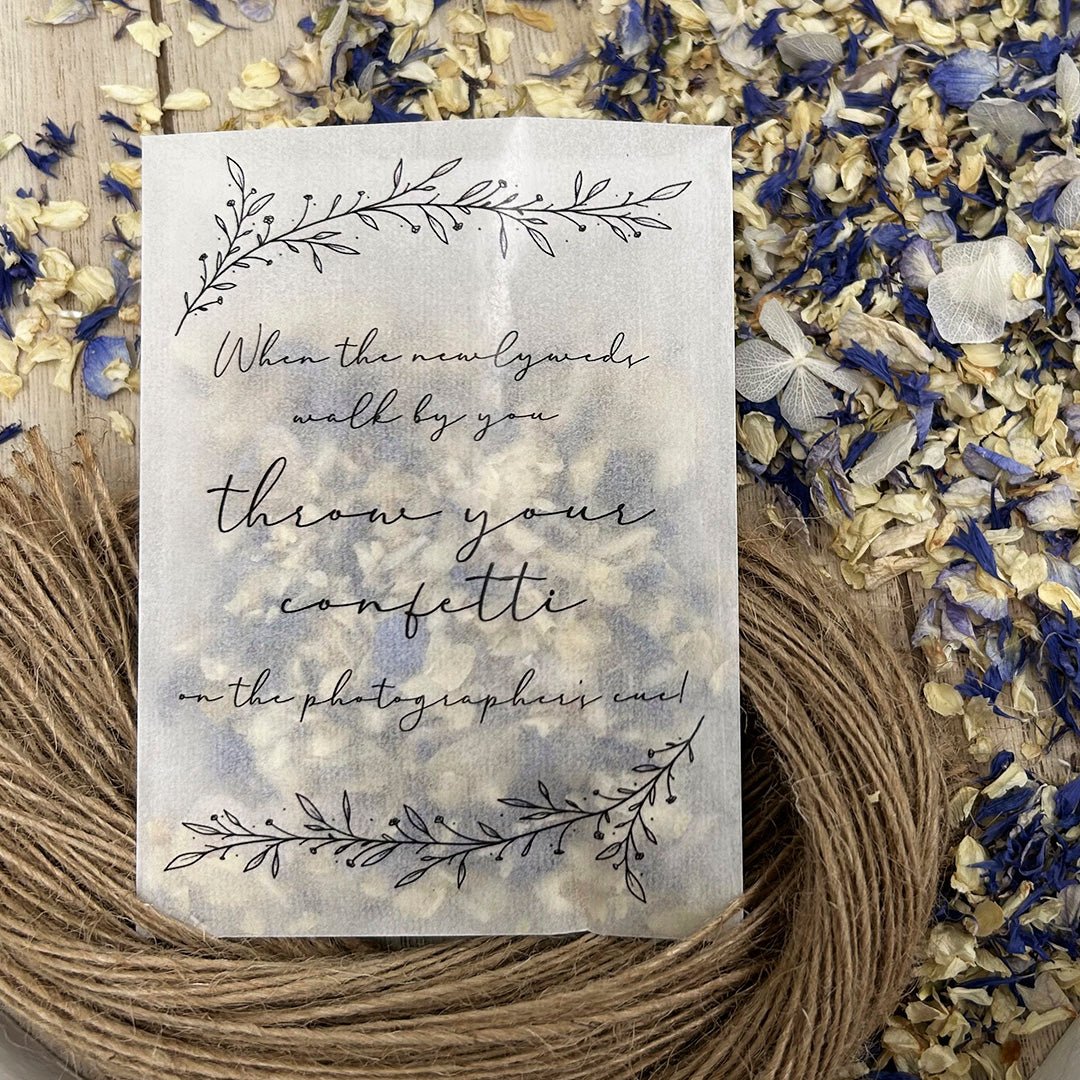 When the newlyweds
walk by you
throw your
confetti
on the photographer's cue!